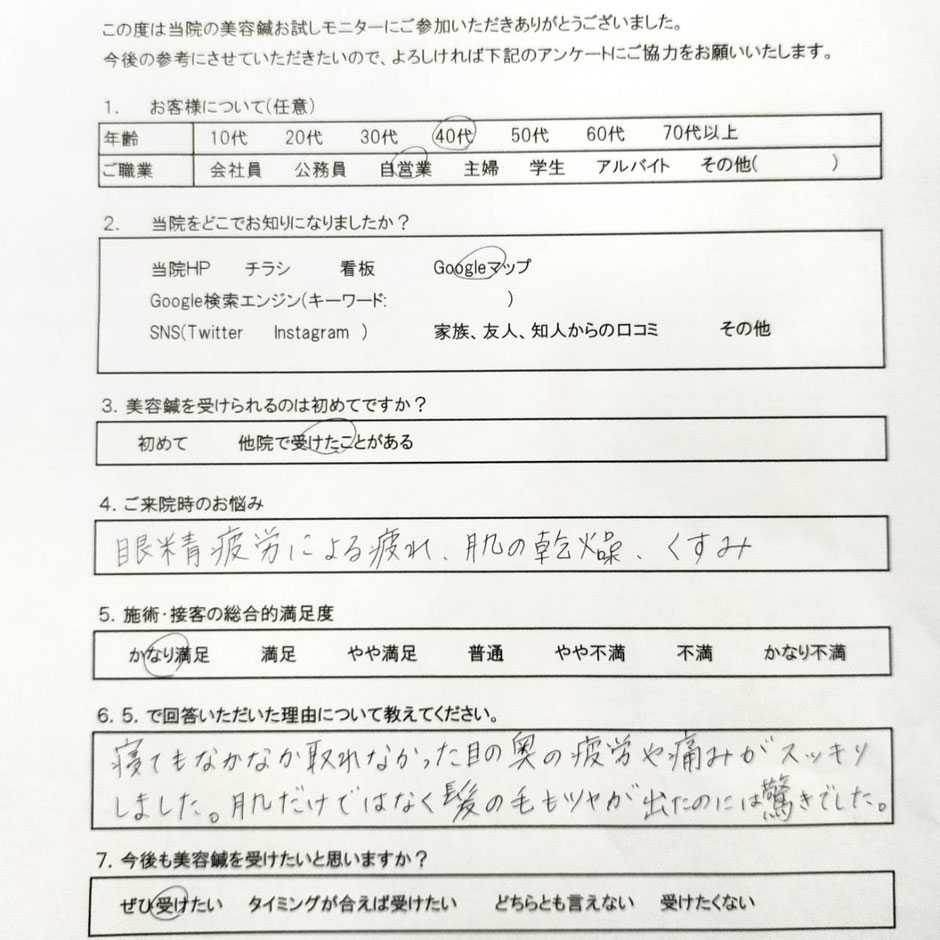 この度は当院の美容鍼お試しモニターにご参加いただきありがとうございました。
今後の参考にさせていただきたいので、よろしければ下記のアンケートにご協力をお願いいたします。
1. お客様について(任意)
年齢 10代 20代 30代 40代 50代 60代 70代以上
ご職業 会社員 公務員 自営業 主婦 学生 アルバイト その他( )
2. 当院をどこでお知りになりましたか？
当院HP チラシ 看板 Googleマップ
Google検索エンジン(キーワード: )
SNS(Twitter Instagram ) 家族、友人、知人からの口コミ その他
3. 美容鍼を受けられるのは初めてですか？
初めて 他院で受けたことがある
4. ご来院時のお悩み
眼精疲労による疲れ、肌の乾燥、くすみ
5. 施術・接客の総合的満足度
かなり満足 満足 やや満足 普通 やや不満 不満 かなり不満
6. 5. で回答いただいた理由について教えてください。
寝てもなかなか取れなかった目の奥の疲労や痛みがスッキリ
しました。肌だけではなく髪の毛もツヤが出たのには驚きでした。
7. 今後も美容鍼を受けたいと思いますか？
ぜひ受けたい タイミングが合えば受けたい どちらとも言えない 受けたくない